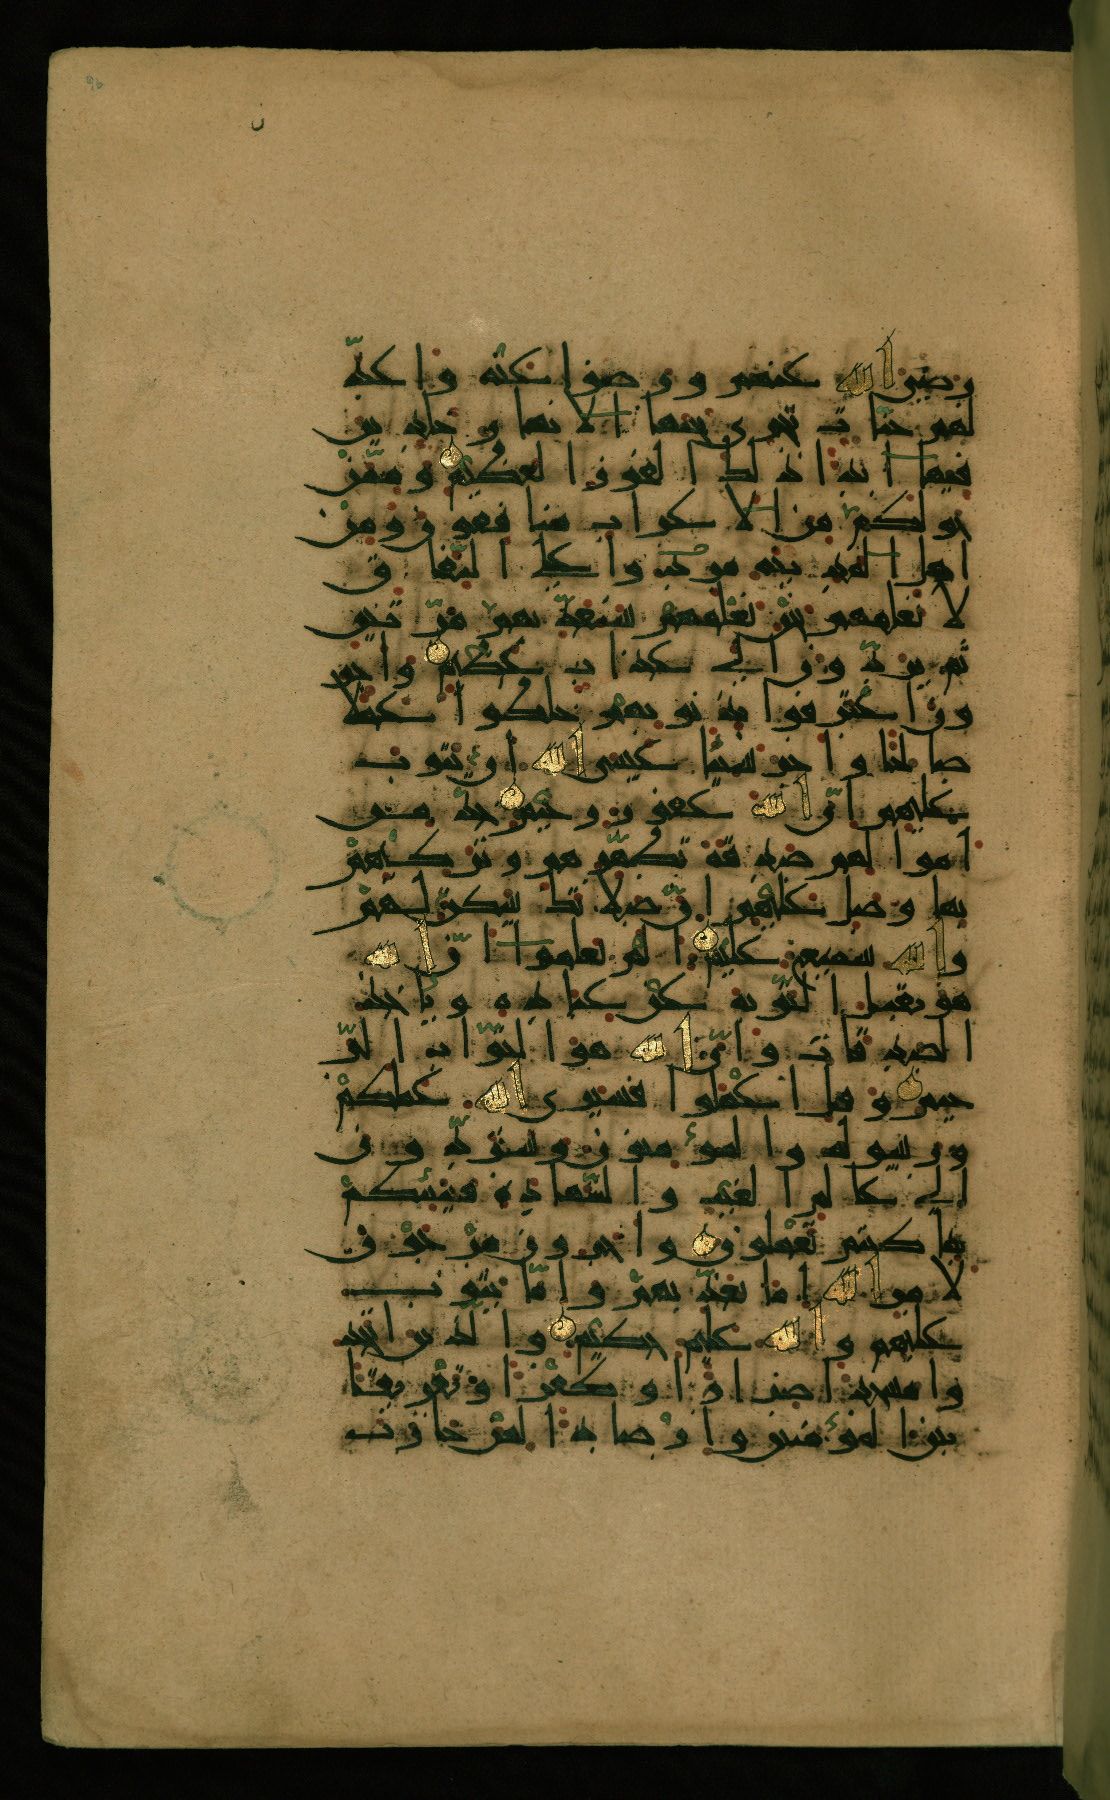 رضي الله عنهم ورضوا عنه واعد
لهم جنات تجري تحتها الانهار خلدين
فيها ابدا ذلك الفوز العظيم وممن
حولكم من الاعراب منافقون ومن
اهل المدينة مردوا على النفاق
لا تعلمهم نحن نعلمهم سنعذبهم مرتين
ثم يردون الى عذاب عظيم واخر
ون اعترفوا بذنوبهم خلطوا عملا
صالحا واخر سيئا عسى الله ان يتوب
عليهم ان الله غفور رحيم خذ من
اموالهم صدقة تطهرهم وتزكيهم
بها وصل عليهم ان صلاتك سكن لهم
والله سميع عليم الم يعلموا ان الله
هو يقبل التوبة عن عباده وياخذ
الصدقات وان الله هو التواب الر
حيم وقل اعملوا فسيرى الله عملكم
ورسوله والمؤمنون وستردون
الى عالم الغيب والشهادة فينبئكم
بما كنتم تعملون واخرون مرجون
لامر الله اما يعذبهم واما يتوب
عليهم والله عليم حكيم والذين اتخذ
وا مسجدا ضرارا وكفرا وتفريقا
بين المؤمنين وارصادا لمن حارب